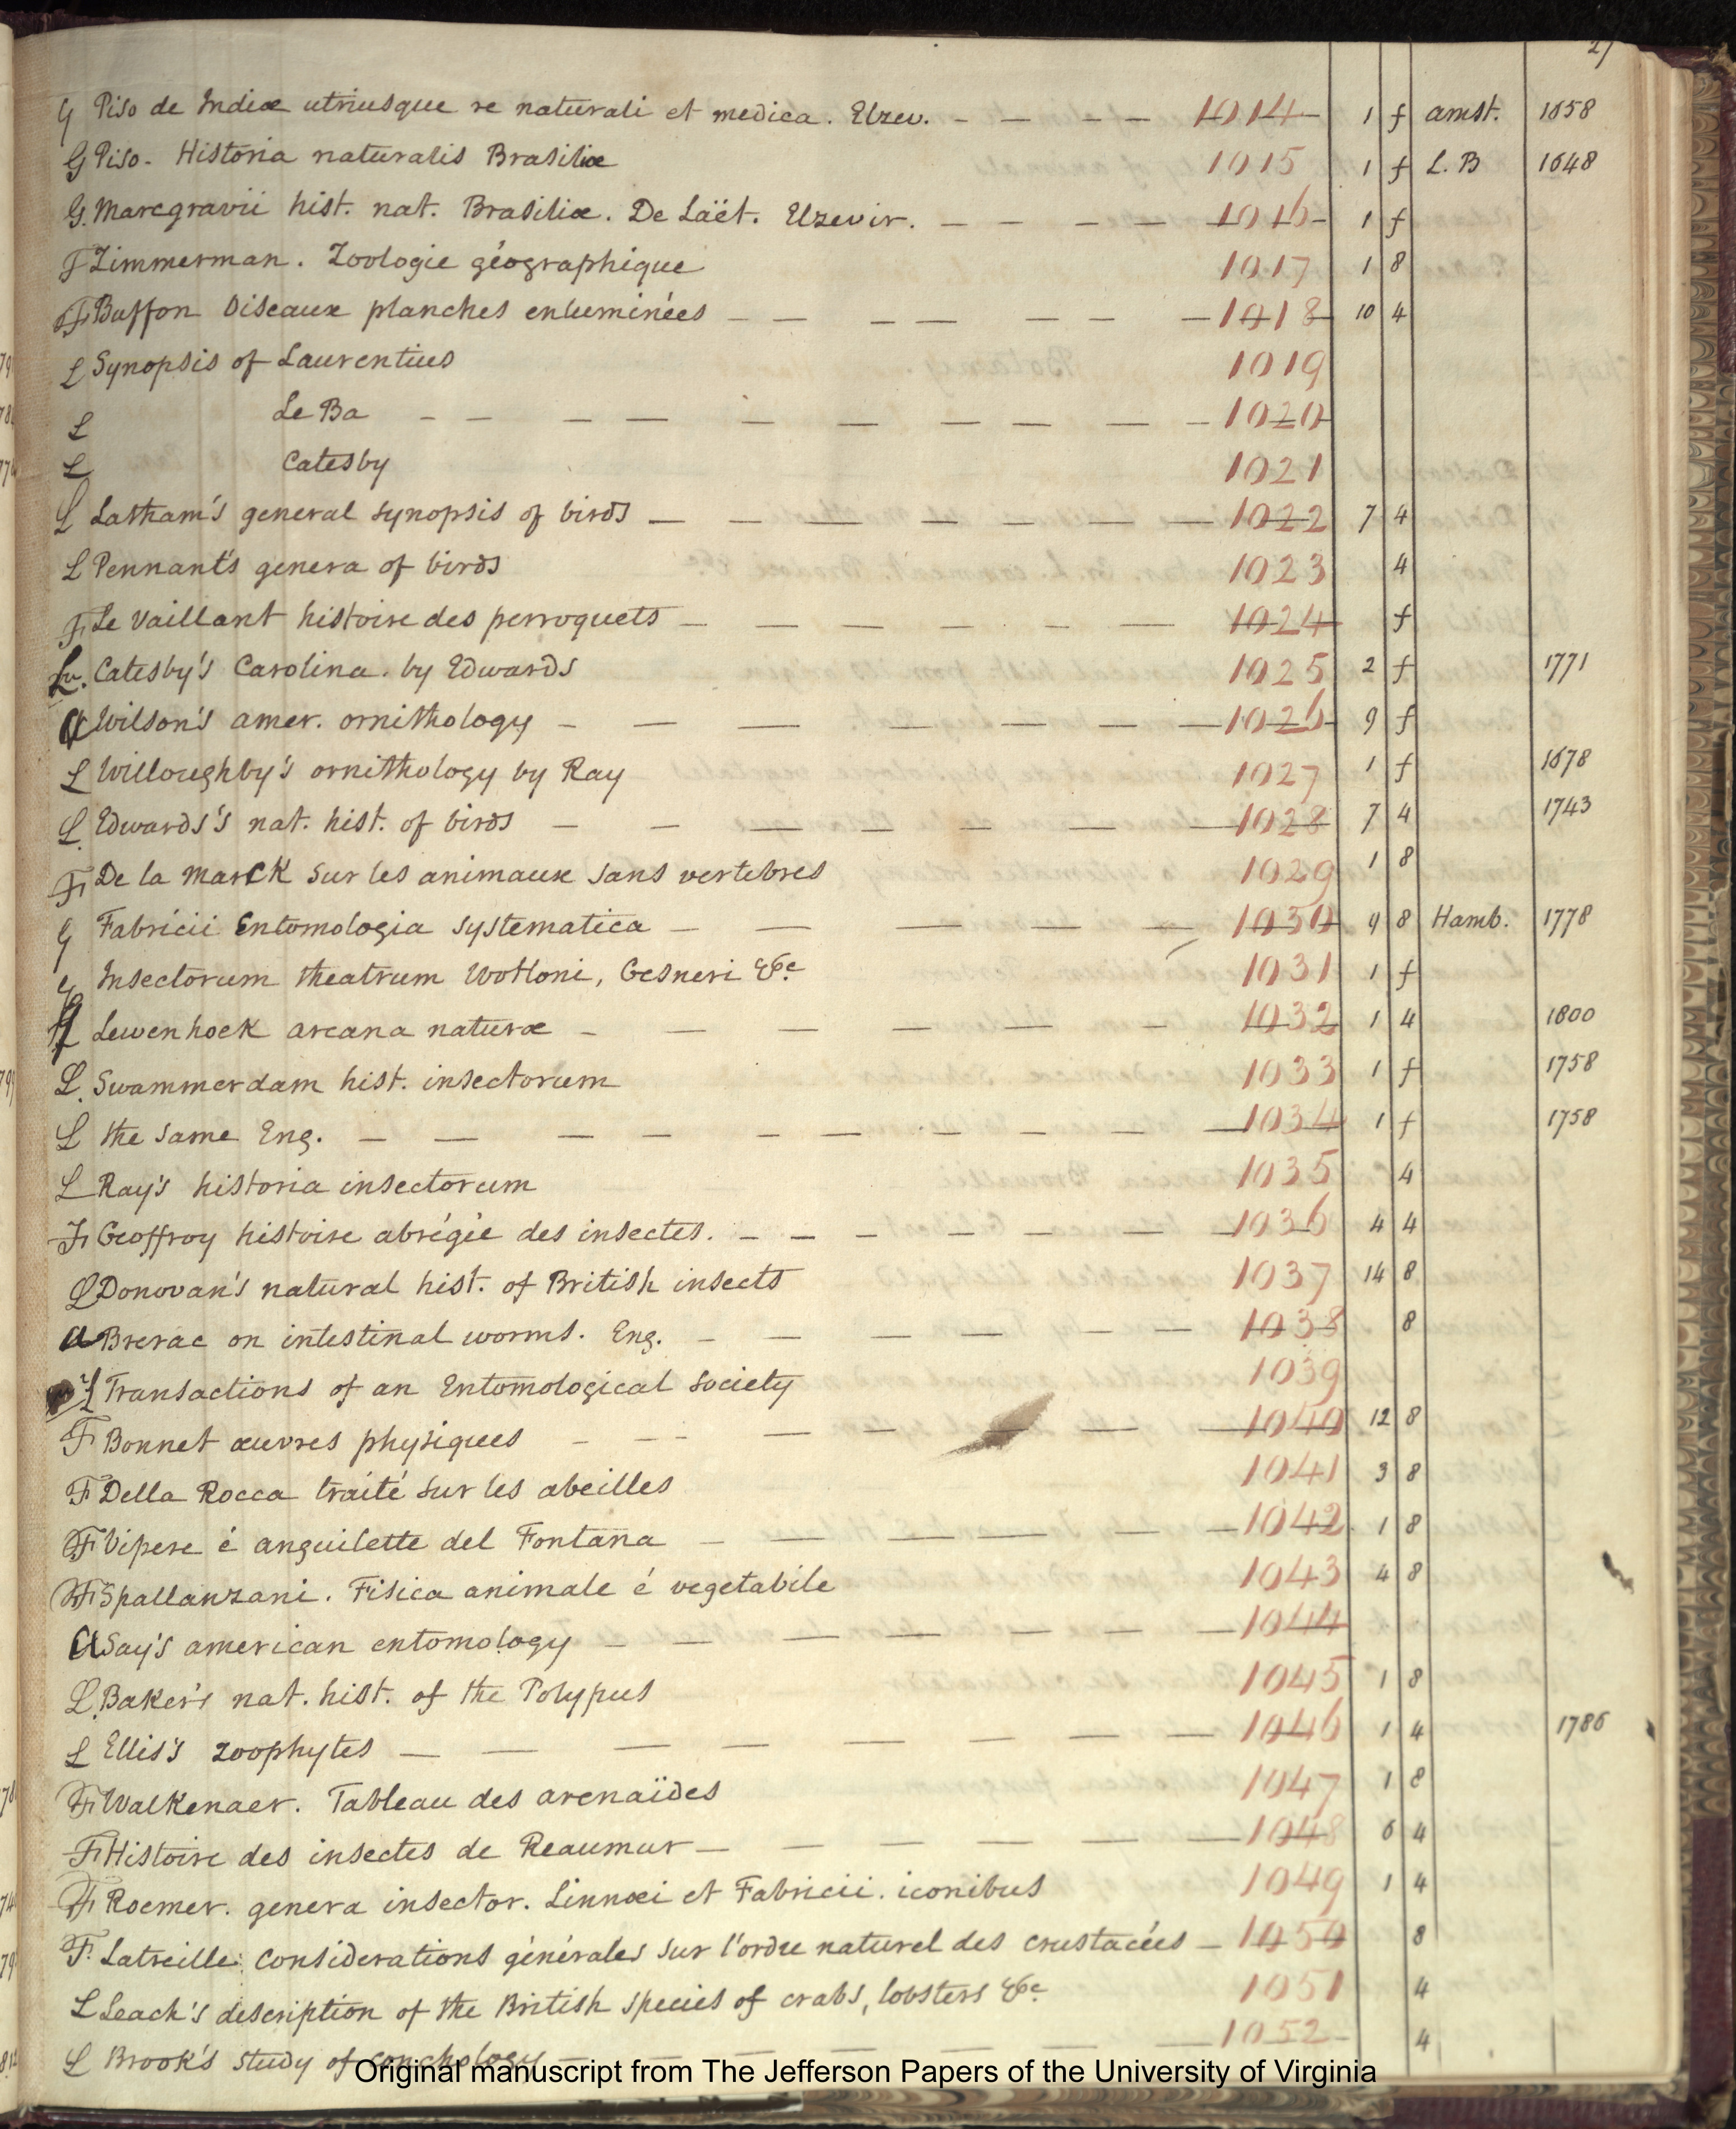 27
G Piso de Indiæ utriusque re naturali et medica. Elzev. - — - — 1014 1 f amst. 1658
G Piso. Historia naturalis Brasiliæ 1015 1 f L.B 1648
G. Marcgravii hist. nat. Brasiliæ. De Laët. Elzevir. — — — — 1016 1 f
F Zimmerman. Zoologie géographique 1017 1 8
F Buffon Oiseaux planches enluminées — — — — — — — 1018 10 4
L Synopsis of Laurentius 1019
L Le Ba — — — — — — — — — - 1020
L Catesby 1021
L Latham's general synopsis of birds — — — — — — — 1022 7 4
L Pennant's genera of birds 1023 4
F Le Vaillant histoire des perroquets — — — — - — — 1024 f
L. Catesby's Carolina. by Edwards 1025 2 f 1771
A Wilson's amer. ornithology - — — — — — — 1026 9 f
L Willoughby's ornithology by Ray 1027 1 f 1678
L Edwards's nat. hist. of birds — — — — — — — 1028 7 4 1743
F De la Marck sur les animaux sans vertebres 1029 1 8
G Fabricii Entomologia systematica — — — — — 1030 9 8 Hamb. 1778
G Insectorum theatrum Wottoni, Gesneri &c 1031 1 f
L Lewenhoek arcana naturæ - — — — — - 1032 1 4 1800
L. Swammerdam hist. insectorum 1033 1 f 1758
L the same Eng. — — — — — — — — — — 1034 1 f 1758
L Ray's historia insectorum 1035 4
F Geoffroy histoire abrégée des insectes. — — — — — — — 1036 4 4
L Donovan's natural hist. of British insects 1037 14 8
A Brerae on intestinal worms. Eng. - — — — — — 1038 8
L Transactions of an Entomological Society 1039
F Bonnet œuvres physiques - - - — — — — — 1040 12 8
F Della Rocca traité sur les abeilles 1041 3 8
F Vipere é anguilette del Fontana — — — — — — 1042 1 8
F Spallanzani. Fisica animale é vegetabile 1043 4 8
A Say's american entomology — — — — — — — 1044
L. Baker's nat. hist. of the Polypus 1045 1 8
L Ellis's zoophytes — — — — — — — — 1046 1 4 1786
F Walkenaer. Tableau des arenaïdes 1047 1 8
F Histoire des insectes de Reaumur — — — — — — 1048 6 4
F Roemer. genera insector. Linnæi et Fabricii. iconibus 1049 1 4
F. Latreille. Considerations générales sur l'ordre naturel des crustacées — 1050 8
L Leach's description of the British species of crabs, lobsters &c 1051 4
L Brook's study of conchology — — — — — — 1052 4
Original manuscript from The Jefferson Papers of the University of Virginia